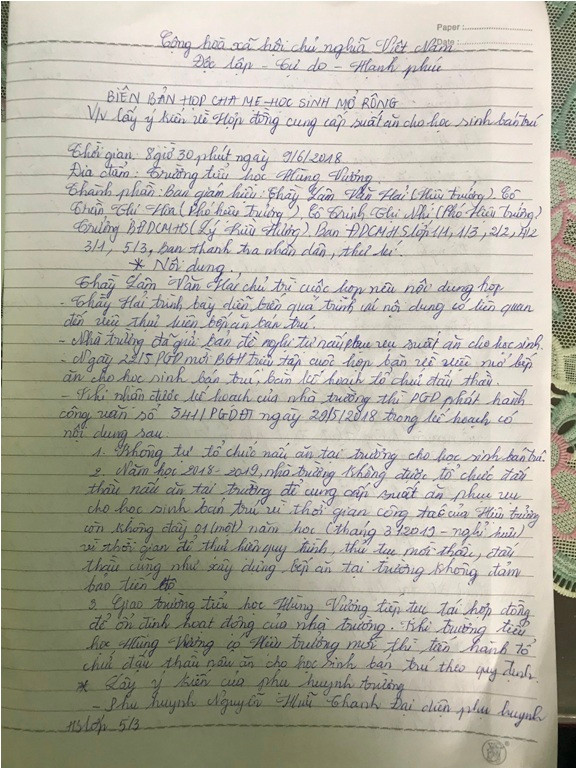 Paper :
Date :
Cộng hoà xã hội chủ nghĩa Việt Nam
Độc lập - Tự do - Hạnh phúc
BIÊN BẢN HỌP CHA MẸ HỌC SINH MỞ RỘNG
V/v lấy ý kiến về Hợp đồng cung cấp suất ăn cho học sinh bán trú
Thời gian: 8 giờ 30 phút ngày 9/6/2018
Địa điểm: Trường tiểu học Hùng Vương
Thành phần: Ban giám hiệu: Thầy Lâm Văn Hai (Hiệu trưởng). Cô
Trần Thị Hòa (Phó hiệu trưởng). Cô Trịnh Thị Nhi (Phó Hiệu Trưởng)
Trưởng BĐDCMHS (Lý Hữu Hương). Ban ĐDCMHS lớp 1/1, 1/3, 2/2,
3/1, 5/3, ban thanh tra nhân dân, thư ký.
* Nội dung.
Thầy Lâm Văn Hai chủ trì cuộc họp nêu nội dung họp
- Thầy Hai trình bày diễn biến quá trình và nội dung có liên quan
đến việc thực hiện bếp ăn bán trú.
- Nhà trường đã gửi bản đề nghị tự nấu phục vụ suất ăn cho học sinh.
- Ngày 29/5 PGD mời BGH triệu tập cuộc họp bàn về việc mở bếp
ăn cho học sinh bán trú, bàn kế hoạch tổ chức đấu thầu.
- Khi nhận được kế hoạch của nhà trường thì PGD phát hành
công văn số 341/PGDĐT ngày 29/5/2018 trong kế hoạch có
nội dung sau.
1. Không tự tổ chức nấu ăn tại trường cho học sinh bán trú
2. Năm học 2018-2019, nhà trường không được tổ chức đấu
thầu nấu ăn tại trường để cung cấp suất ăn phục vụ
cho học sinh bán trú vì thời gian công tác của Hiệu trưởng
còn không đầy 01 (một) năm học (tháng 3/2019 - nghỉ hưu)
vì thời gian để thực hiện quy trình, thủ tục mời thầu, đấu
thầu cũng như xây dựng bếp ăn tại trường không đảm
bảo tiến độ
3. Giao trường tiểu học Hùng Vương tiếp tục tái hợp đồng
để ổn định hoạt động của nhà trường. Khi trường tiểu
học Hùng Vương có Hiệu trưởng mới thì tiến hành tổ
chức đấu thầu nấu ăn cho học sinh bán trú theo quy định.
* Lấy ý kiến của phụ huynh trường
- Phụ huynh Nguyễn Hữu Thanh Đại diện phụ huynh
HS lớp 5/3